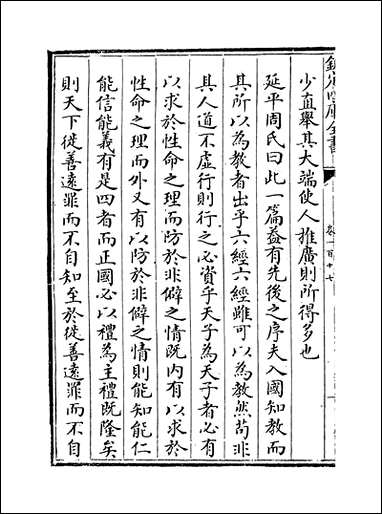 欽定四庫全書
卷一百十七
少直舉其大端使人推廣則所得多也
延平周氏曰此一篇蓋有先後之序夫入國知教而
其所以為教者出乎六經六經雖可以為教然苟非
其人道不虛行則行之必資乎天子為天子者必有
以求於性命之理而防於非僻之情既内有以求於
性命之理而外又有以防於非僻之情則能知能仁
能信能義有是四者而正國必以禮為主禮既隆矣
則天下徙善遠罪而不自知至於徙善遠罪而不自